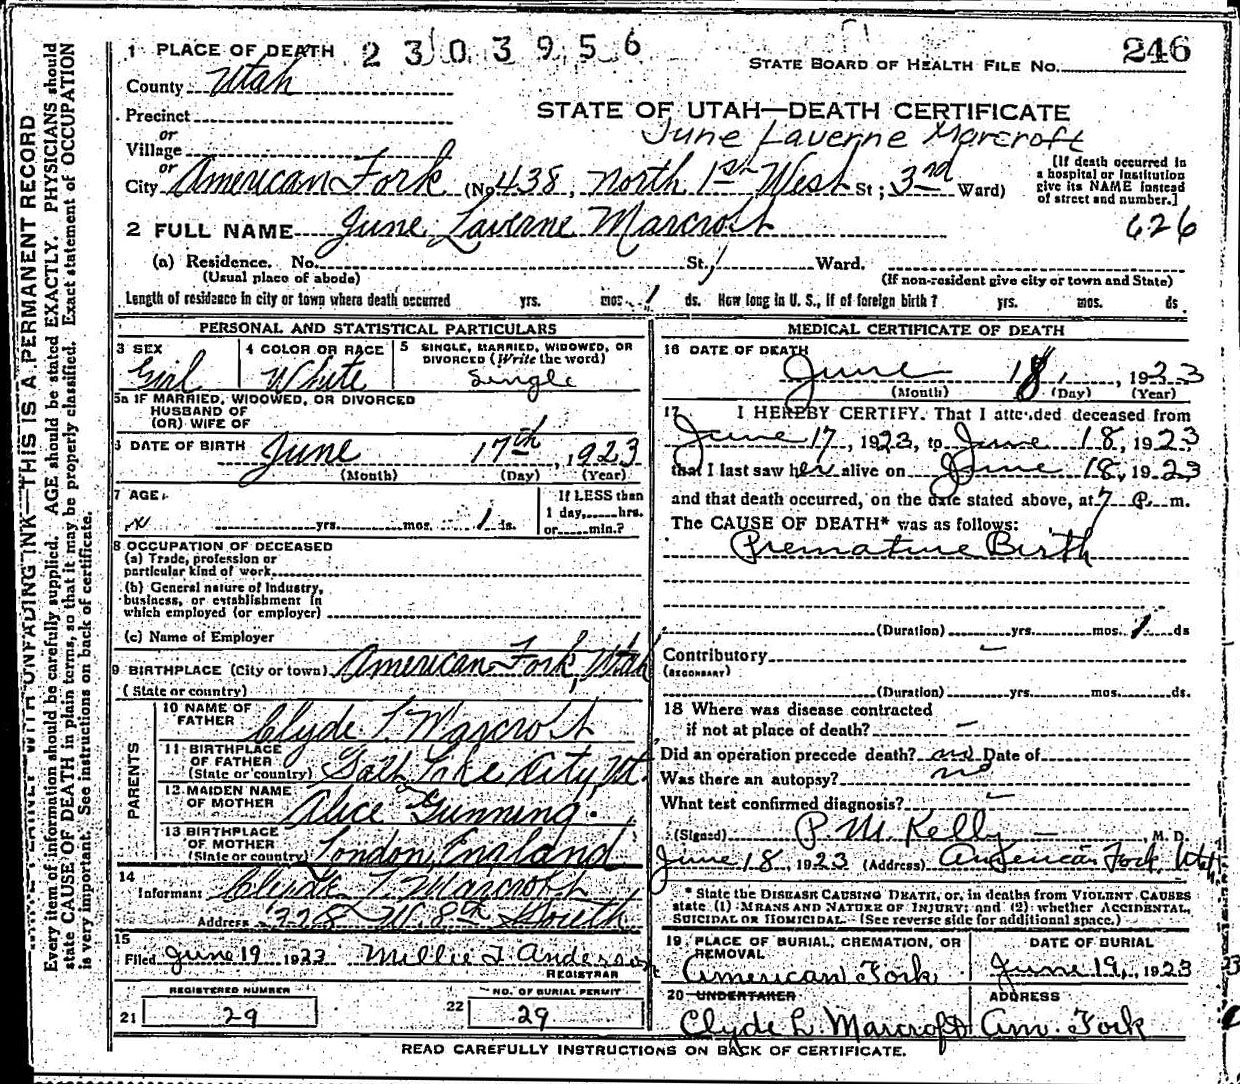 1 PLACE OF DEATH 2303956
STATE BOARD OF HEALTH FILE No. 246
County Utah
STATE OF UTAH—DEATH CERTIFICATE
Precinct
June Laverne Marcroft
or
Village
or
City American Fork (No 438, North 1st West St; 3rd Ward)
[If death occurred in
a hospital or institution
give its NAME instead
of street and number.]
2 FULL NAME June Laverne Marcroft
626
(a) Residence. No. St, Ward.
(Usual place of abode) (If non-resident give city or town and State)
Length of residence in city or town where death occurred yrs. mos. 1 ds. How long in U. S., if of foreign birth? yrs. mos. ds.
PERSONAL AND STATISTICAL PARTICULARS
3 SEX
Girl
4 COLOR OR RACE
White
5 SINGLE, MARRIED, WIDOWED, OR
DIVORCED (Write the word)
Single
5a IF MARRIED, WIDOWED, OR DIVORCED
HUSBAND OF
(OR) WIFE OF
6 DATE OF BIRTH June 17th, 1923
(Month) (Day) (Year)
7 AGE
yrs. mos. 1 ds.
If LESS than
1 day, hrs.
or min.?
8 OCCUPATION OF DECEASED
(a) Trade, profession or
particular kind of work
(b) General nature of Industry,
business, or establishment in
which employed (or employer)
(c) Name of Employer
9 BIRTHPLACE (City or town) American Fork, Utah
(State or country)
PARENTS
10 NAME OF
FATHER Clyde L Marcroft
11 BIRTHPLACE
OF FATHER
(State or country) Salt Lake City, Ut.
12 MAIDEN NAME
OF MOTHER Alice Gunning
13 BIRTHPLACE
OF MOTHER
(State or country) London, England
14
Informant Clyde L Marcroft
Address 228 W. 8th South
15
Filed June 19 1923 Millie T. Anderson
REGISTRAR
REGISTERED NUMBER
21 29
NO. OF BURIAL PERMIT
22 29
MEDICAL CERTIFICATE OF DEATH
16 DATE OF DEATH
June 18, 1923
(Month) (Day) (Year)
17 I HEREBY CERTIFY. That I attended deceased from
June 17, 1923, to June 18, 1923
that I last saw her alive on June 18, 1923
and that death occurred, on the date stated above, at 7 P. m.
The CAUSE OF DEATH* was as follows:
Premature Birth
(Duration) yrs. mos. 1 ds
Contributory
(SECONDARY)
(Duration) yrs. mos. ds.
18 Where was disease contracted
if not at place of death?
Did an operation precede death? no Date of
Was there an autopsy? no
What test confirmed diagnosis?
(Signed) P. M. Kelly, M. D.
June 18, 1923 (Address) American Fork, Utah
* State the DISEASE CAUSING DEATH, or, in deaths from VIOLENT CAUSES
state (1) MEANS AND NATURE OF INJURY; and (2) whether ACCIDENTAL,
SUICIDAL OR HOMICIDAL. (See reverse side for additional space.)
19 PLACE OF BURIAL, CREMATION, OR
REMOVAL
American Fork
DATE OF BURIAL
June 19, 1923
20 UNDERTAKER
Clyde L. Marcroft
ADDRESS
Am. Fork
READ CAREFULLY INSTRUCTIONS ON BACK OF CERTIFICATE.
WITH UNFADING INK—THIS IS A PERMANENT RECORD
Every item of information should be carefully supplied. AGE should be stated EXACTLY. PHYSICIANS should
state CAUSE OF DEATH in plain terms, so that it may be properly classified. Exact statement of OCCUPATION
is very important. See instructions on back of certificate.